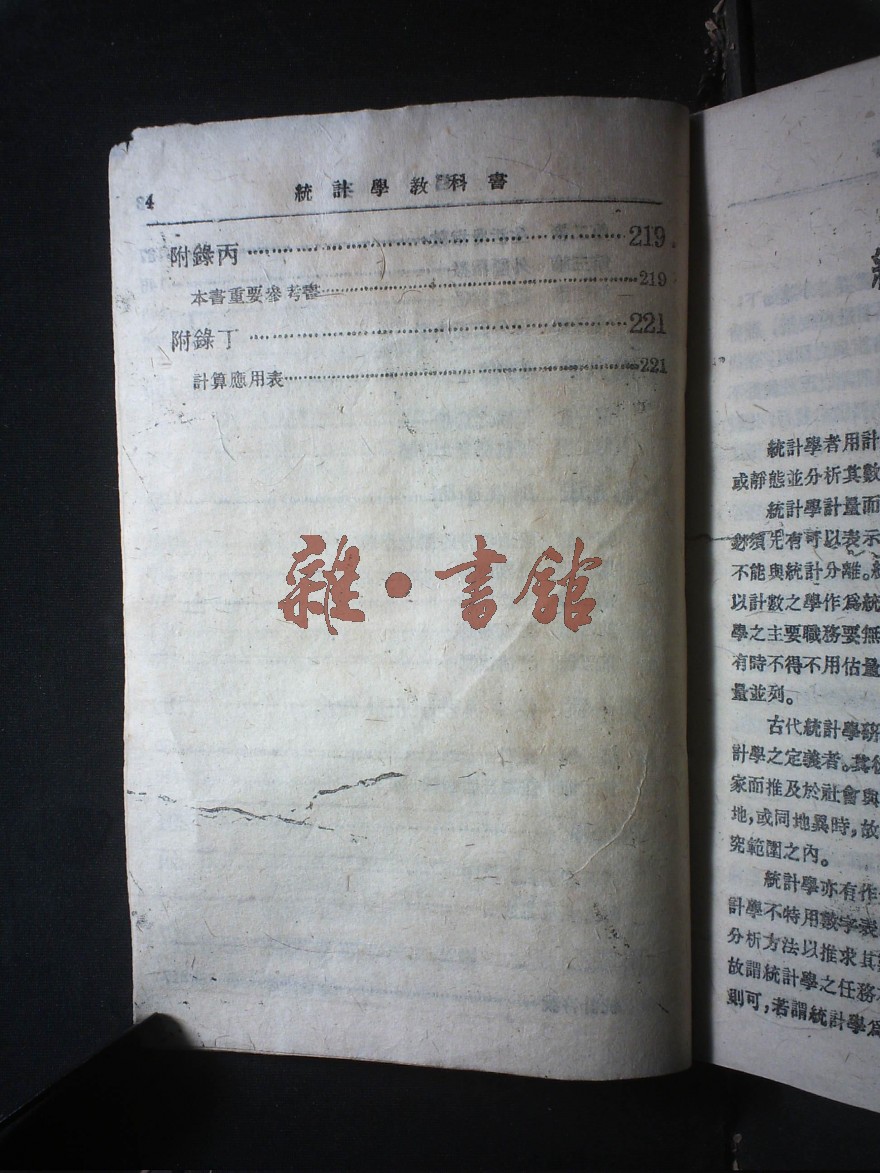 4 統計學教科書
附錄丙 219
本書重要參考書 219
附錄丁 221
計算應用表 221
雜·書館
統計學者用計
或靜態並分析其數
統計學計量而
必須先有可以表示
不能與統計分離。
以計數之學作爲統
學之主要職務要無
有時不得不用估量
量並列。
古代統計學研
計學之定義者。其後
家而推及於社會與
地,或同地異時,故
究範圍之內。
統計學亦有作
計學不特用數字表
分析方法以推求其
故謂統計學之任務
則可,若謂統計學爲